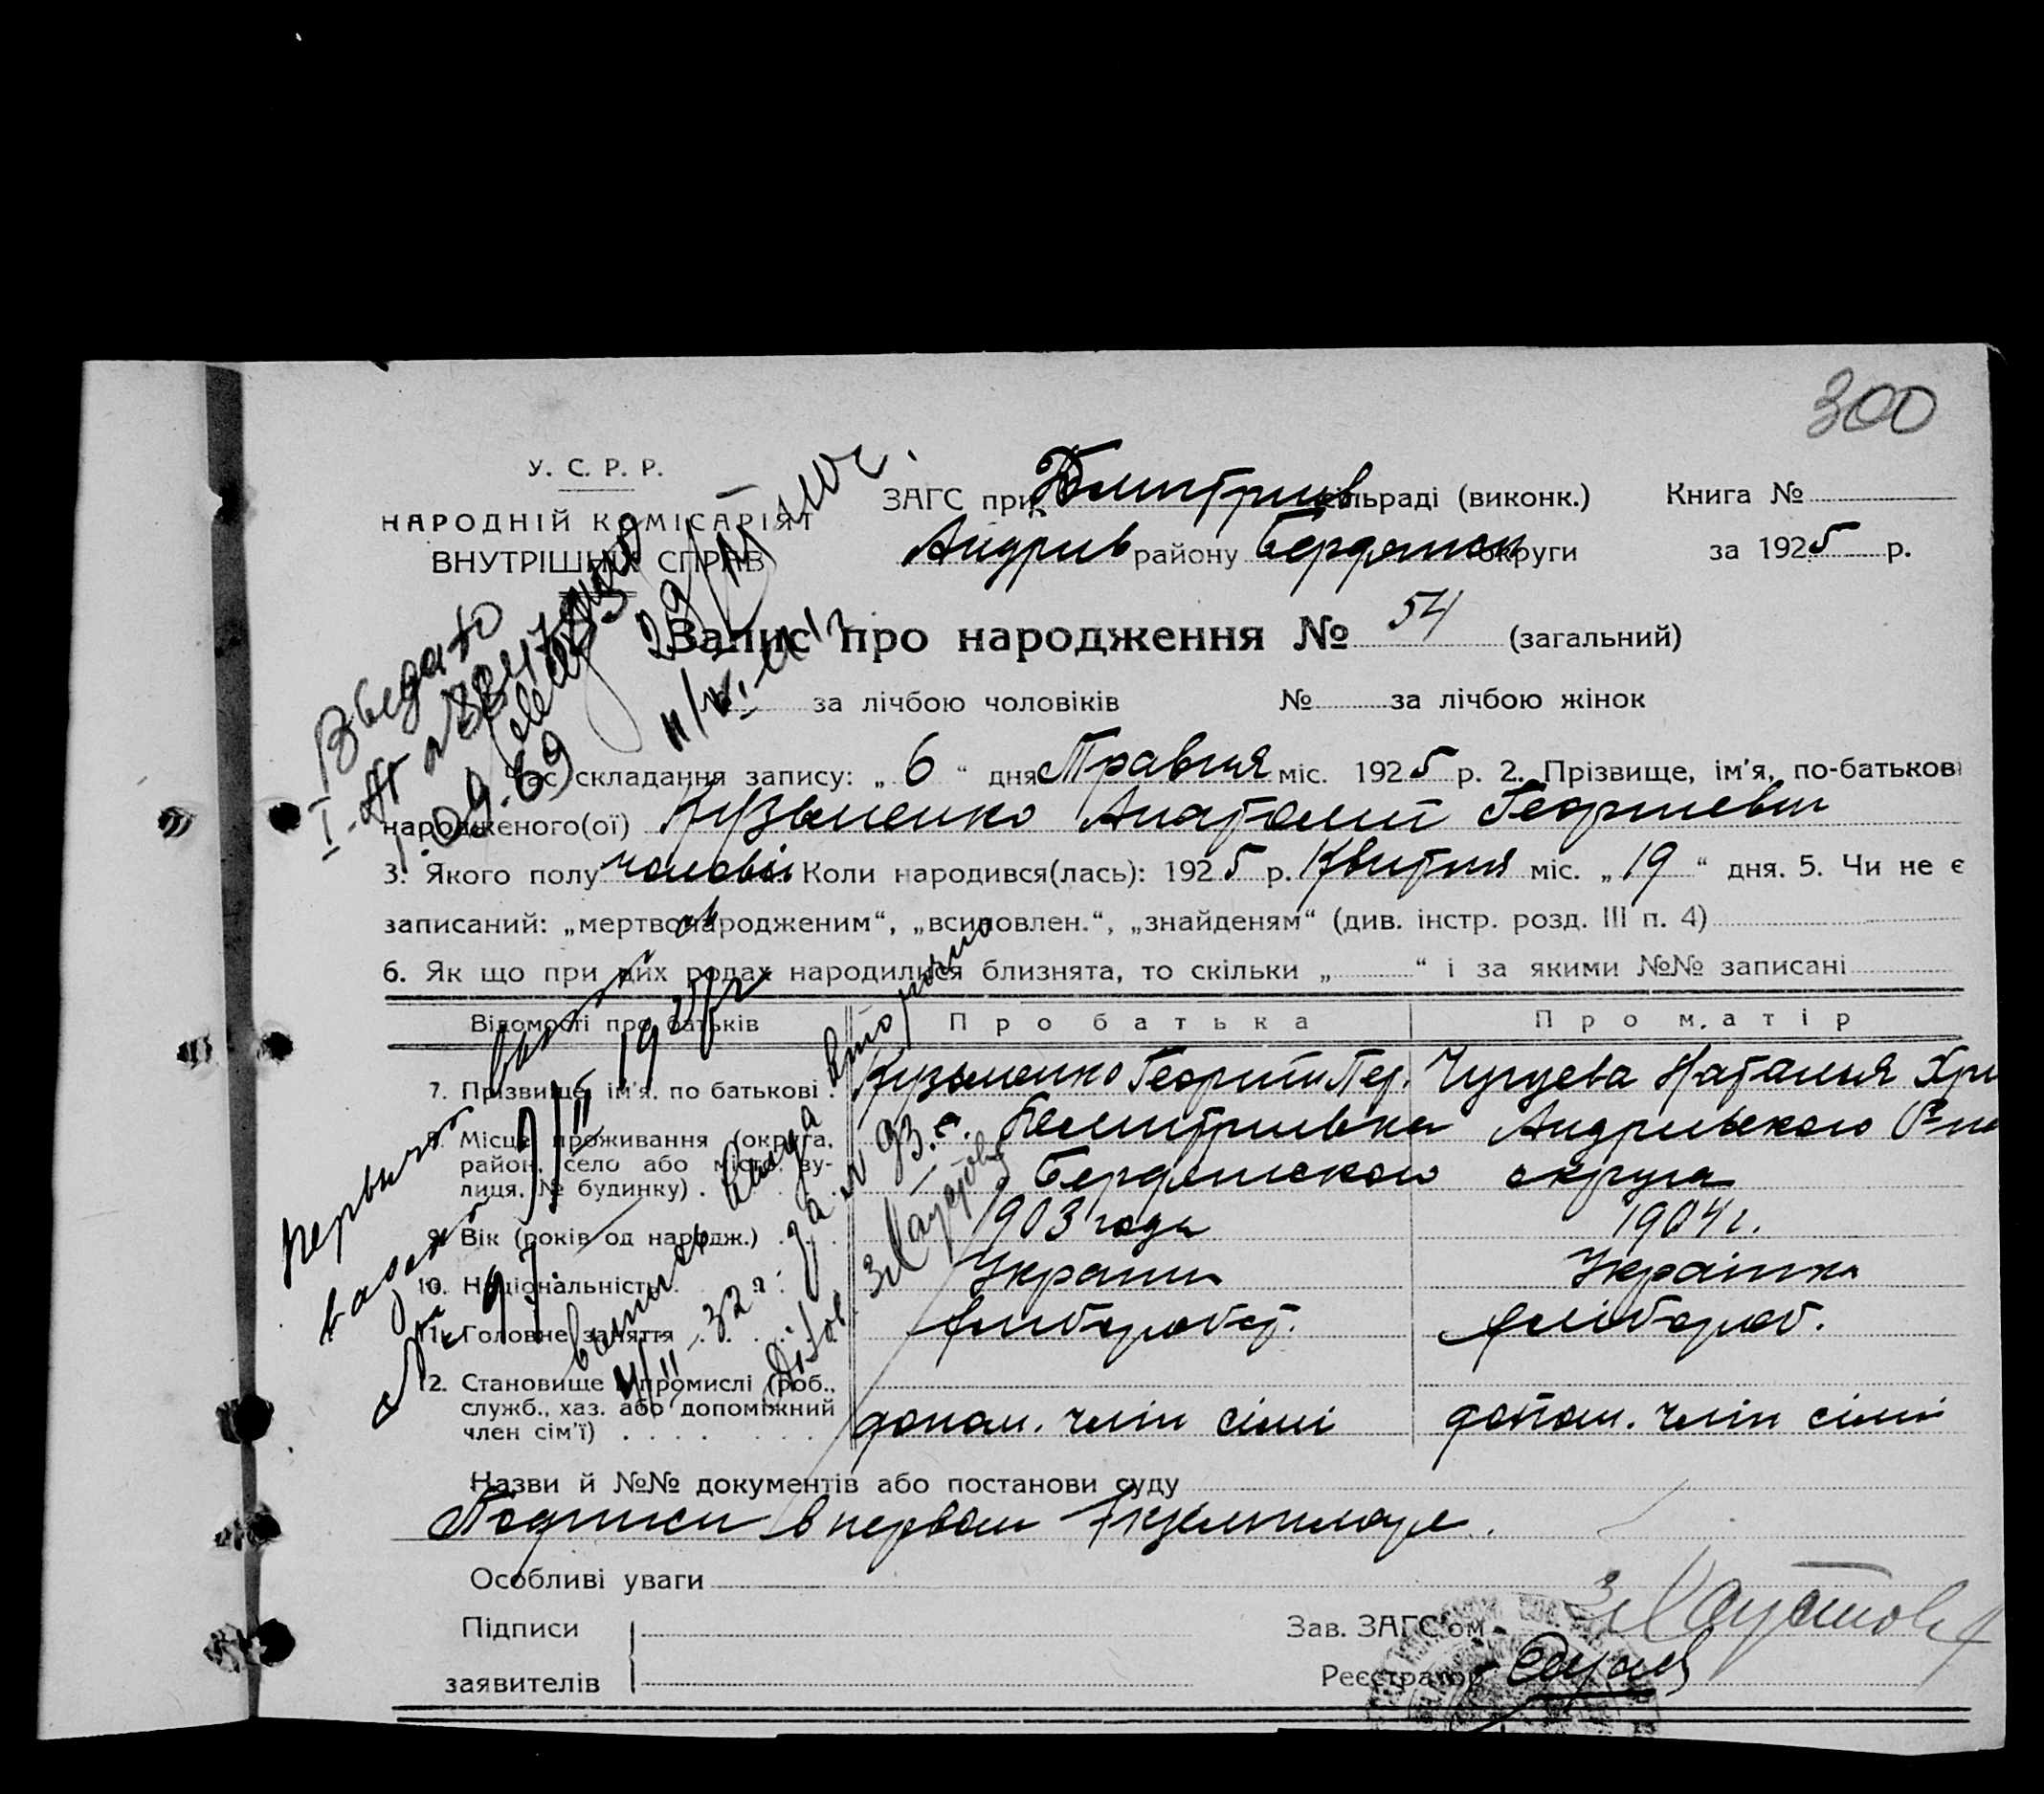 300
У. С. Р. Р.
НАРОДНІЙ КОМІСАРІЯТ
ВНУТРІШНІХ СПРАВ
ЗАГС при Дмитрив сільраді (виконк.) Книга №
Андрив району Бердянск округи за 1925 р.
Запис про народження № 54 (загальний)
№ за лічбою чоловіків № за лічбою жінок
Час складання запису: „ 6 “ дня Травня міс. 1925 р. 2. Прізвище, ім'я, по-батькові
народженого(ої) Кузьменко Анатолий Георгиевич
3. Якого полу чоловіч Коли народився(лась): 1925 р. Квитня міс. „ 19 “ дня. 5. Чи не є
записаний: „мертвонародженим“, „всиновлен.“, „знайденям“ (див. інстр. розд. III п. 4)
6. Як що при цих родах народилися близнята, то скільки „ “ і за якими №№ записані
Відомості про батьків Про батька Про матір
7. Прізвище, ім'я, по батькові Кузьменко Георгий Пет. Чугуева Наталья Хри
8. Місце проживання (округа, с. Дмитривка Андривского Р-на
район, село або місто, ву-
лиця, № будинку) Бердянского округа
9. Вік (років од народж.) 1903 года 1904 г.
10. Національність Украин Украінка
11. Головне заняття хлибороб хлібороб.
12. Становище в промислі (роб.,
служб., хаз. або допоміжний
член сім'ї) допом. член сімі допом. член сімі
Назви й №№ документів або постанови суду
Подписи в первом экземпляре.
Особливі уваги
Підписи
заявителів
Зав. ЗАГС'ом
Реєстратор
Вторично
выписка
за № 93.
1.09.69